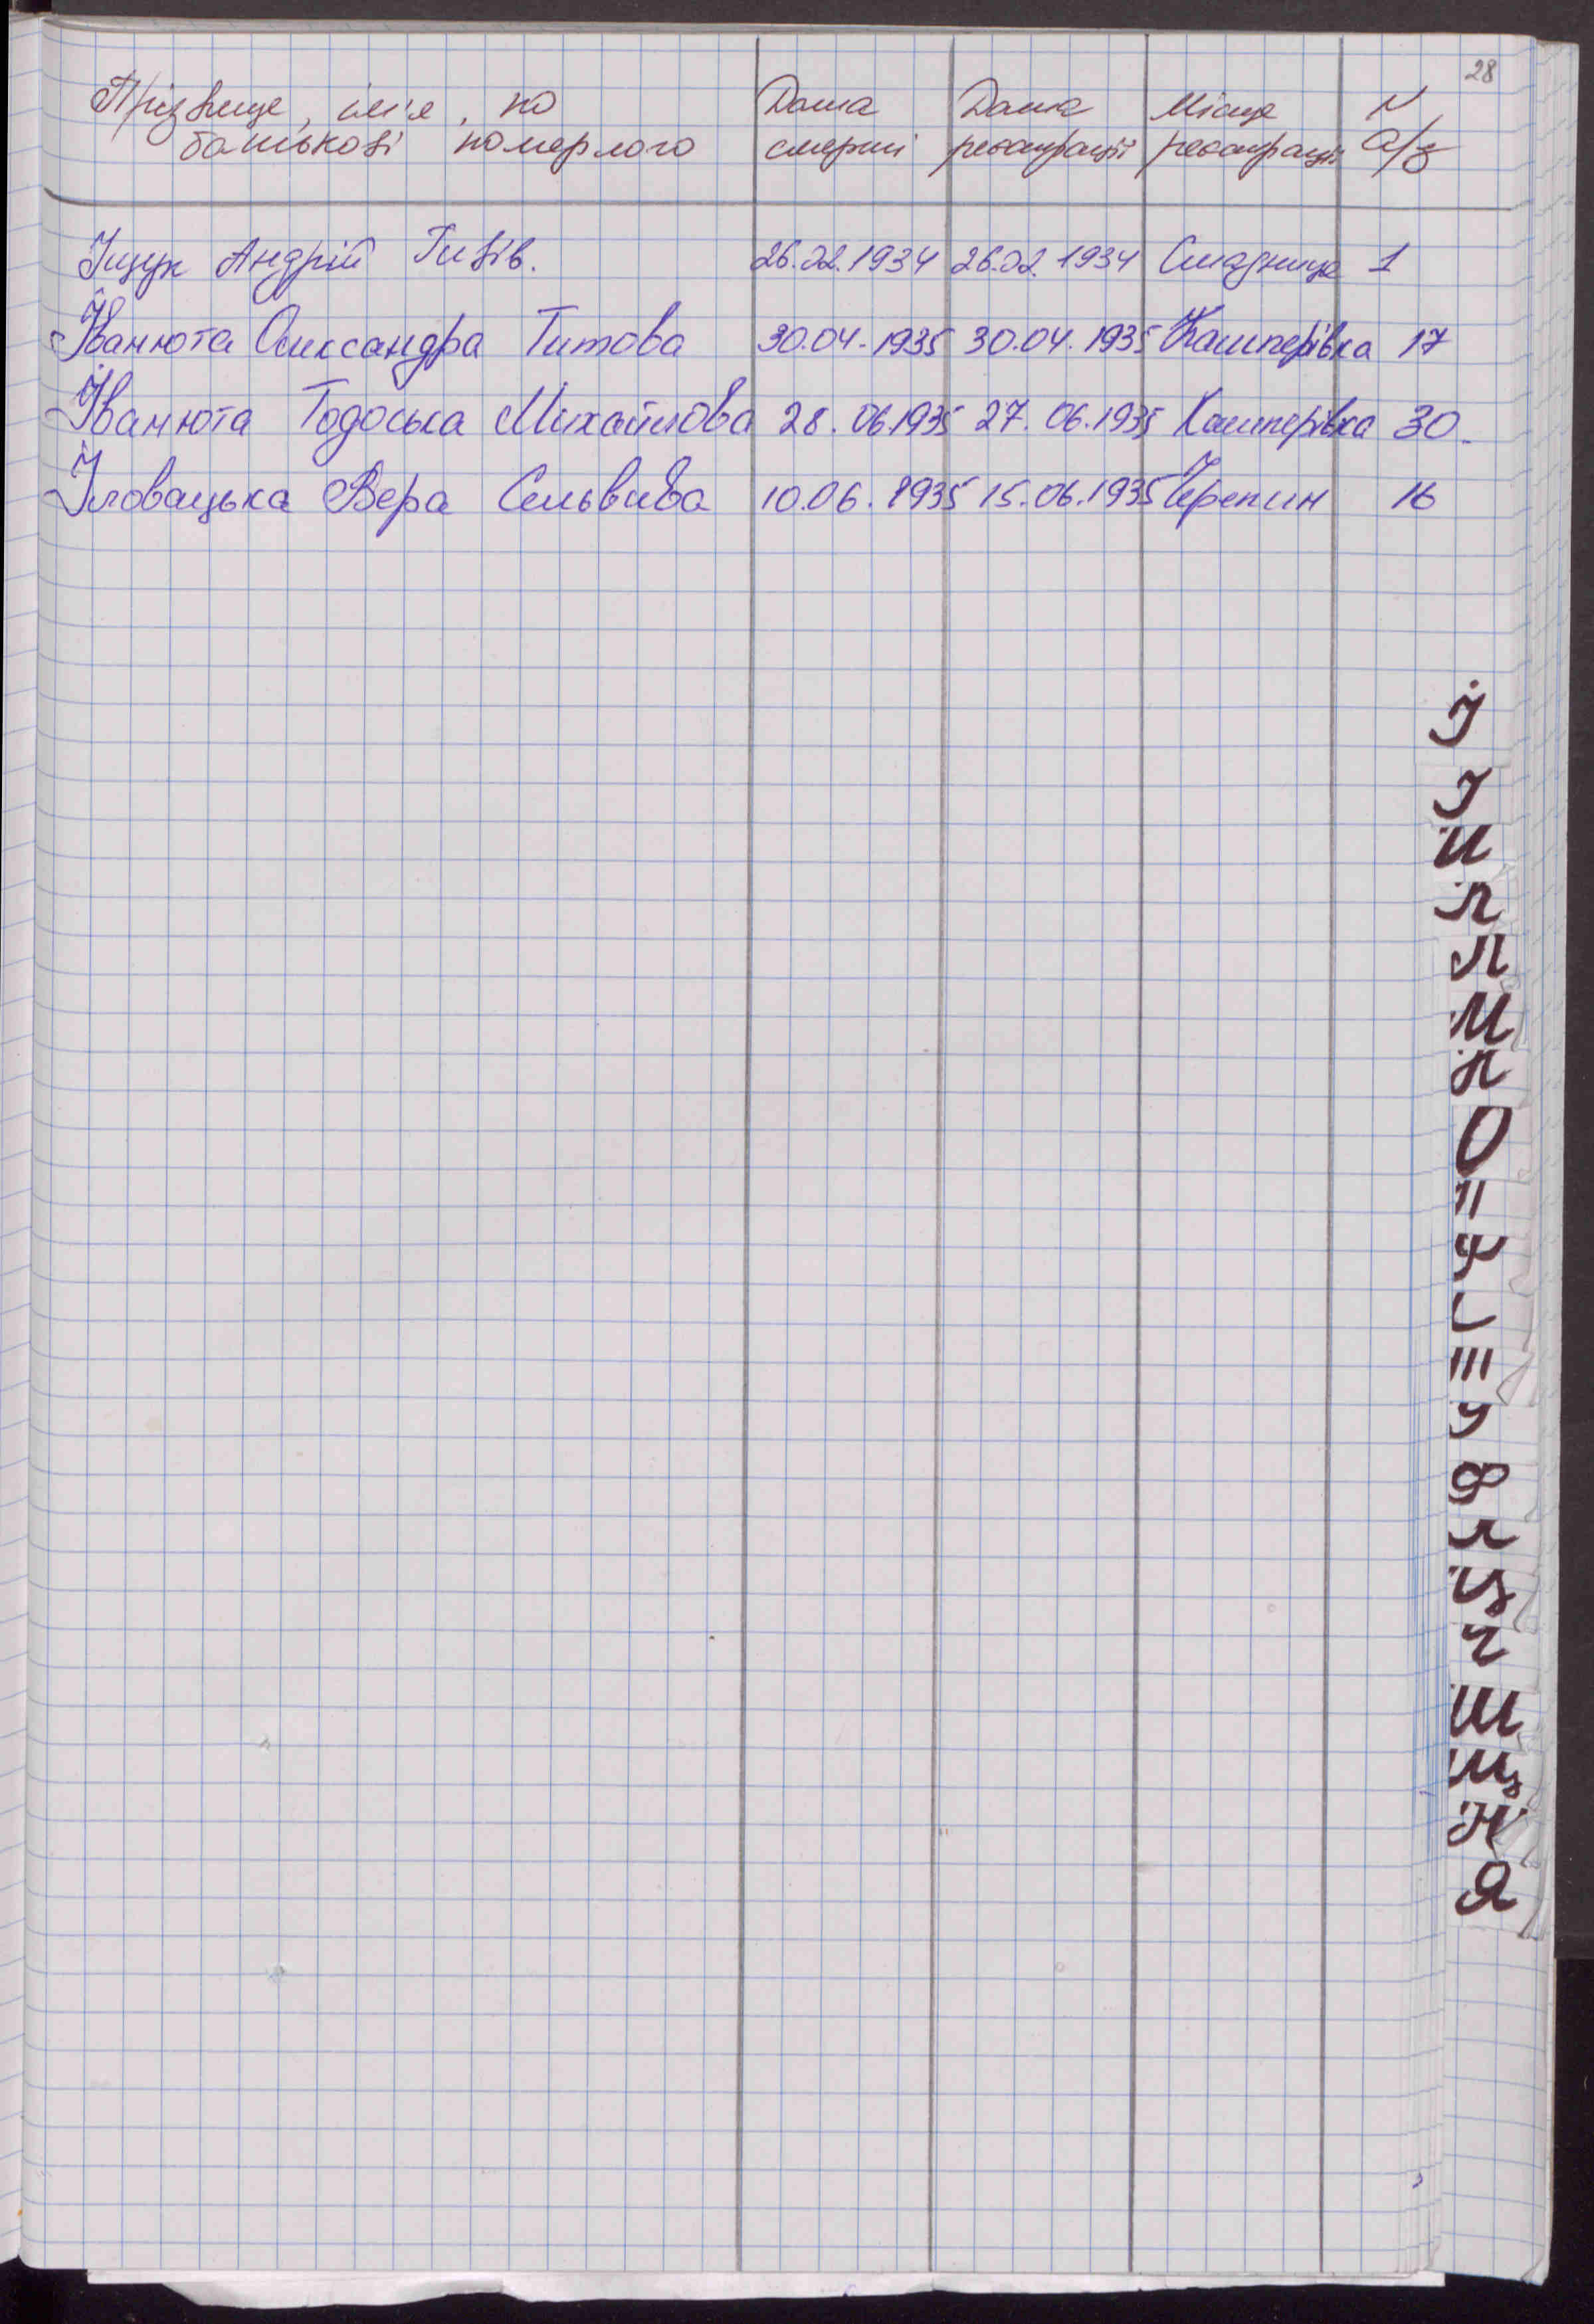 28
Прізвище, ім'я, по Дата Дата Місце N
батькові померлого смерті реєстрації реєстрації а/з
Іщук Андрій 26.02.1934 26.02.1934 1
Їванюта Олександра Титова 30.04.1935 30.04.1935 Кашперівка 17
Їванюта Тодоська Михайлова 28.06.1935 27.06.1935 Кашперівка 30.
Іловацька Вера 10.06.1935 15.06.1935 Черепин 16
Ї
І
И
К
Л
М
Н
О
П
Р
С
Т
У
Ф
Х
Ц
Ч
Ш
Щ
Ю
Я